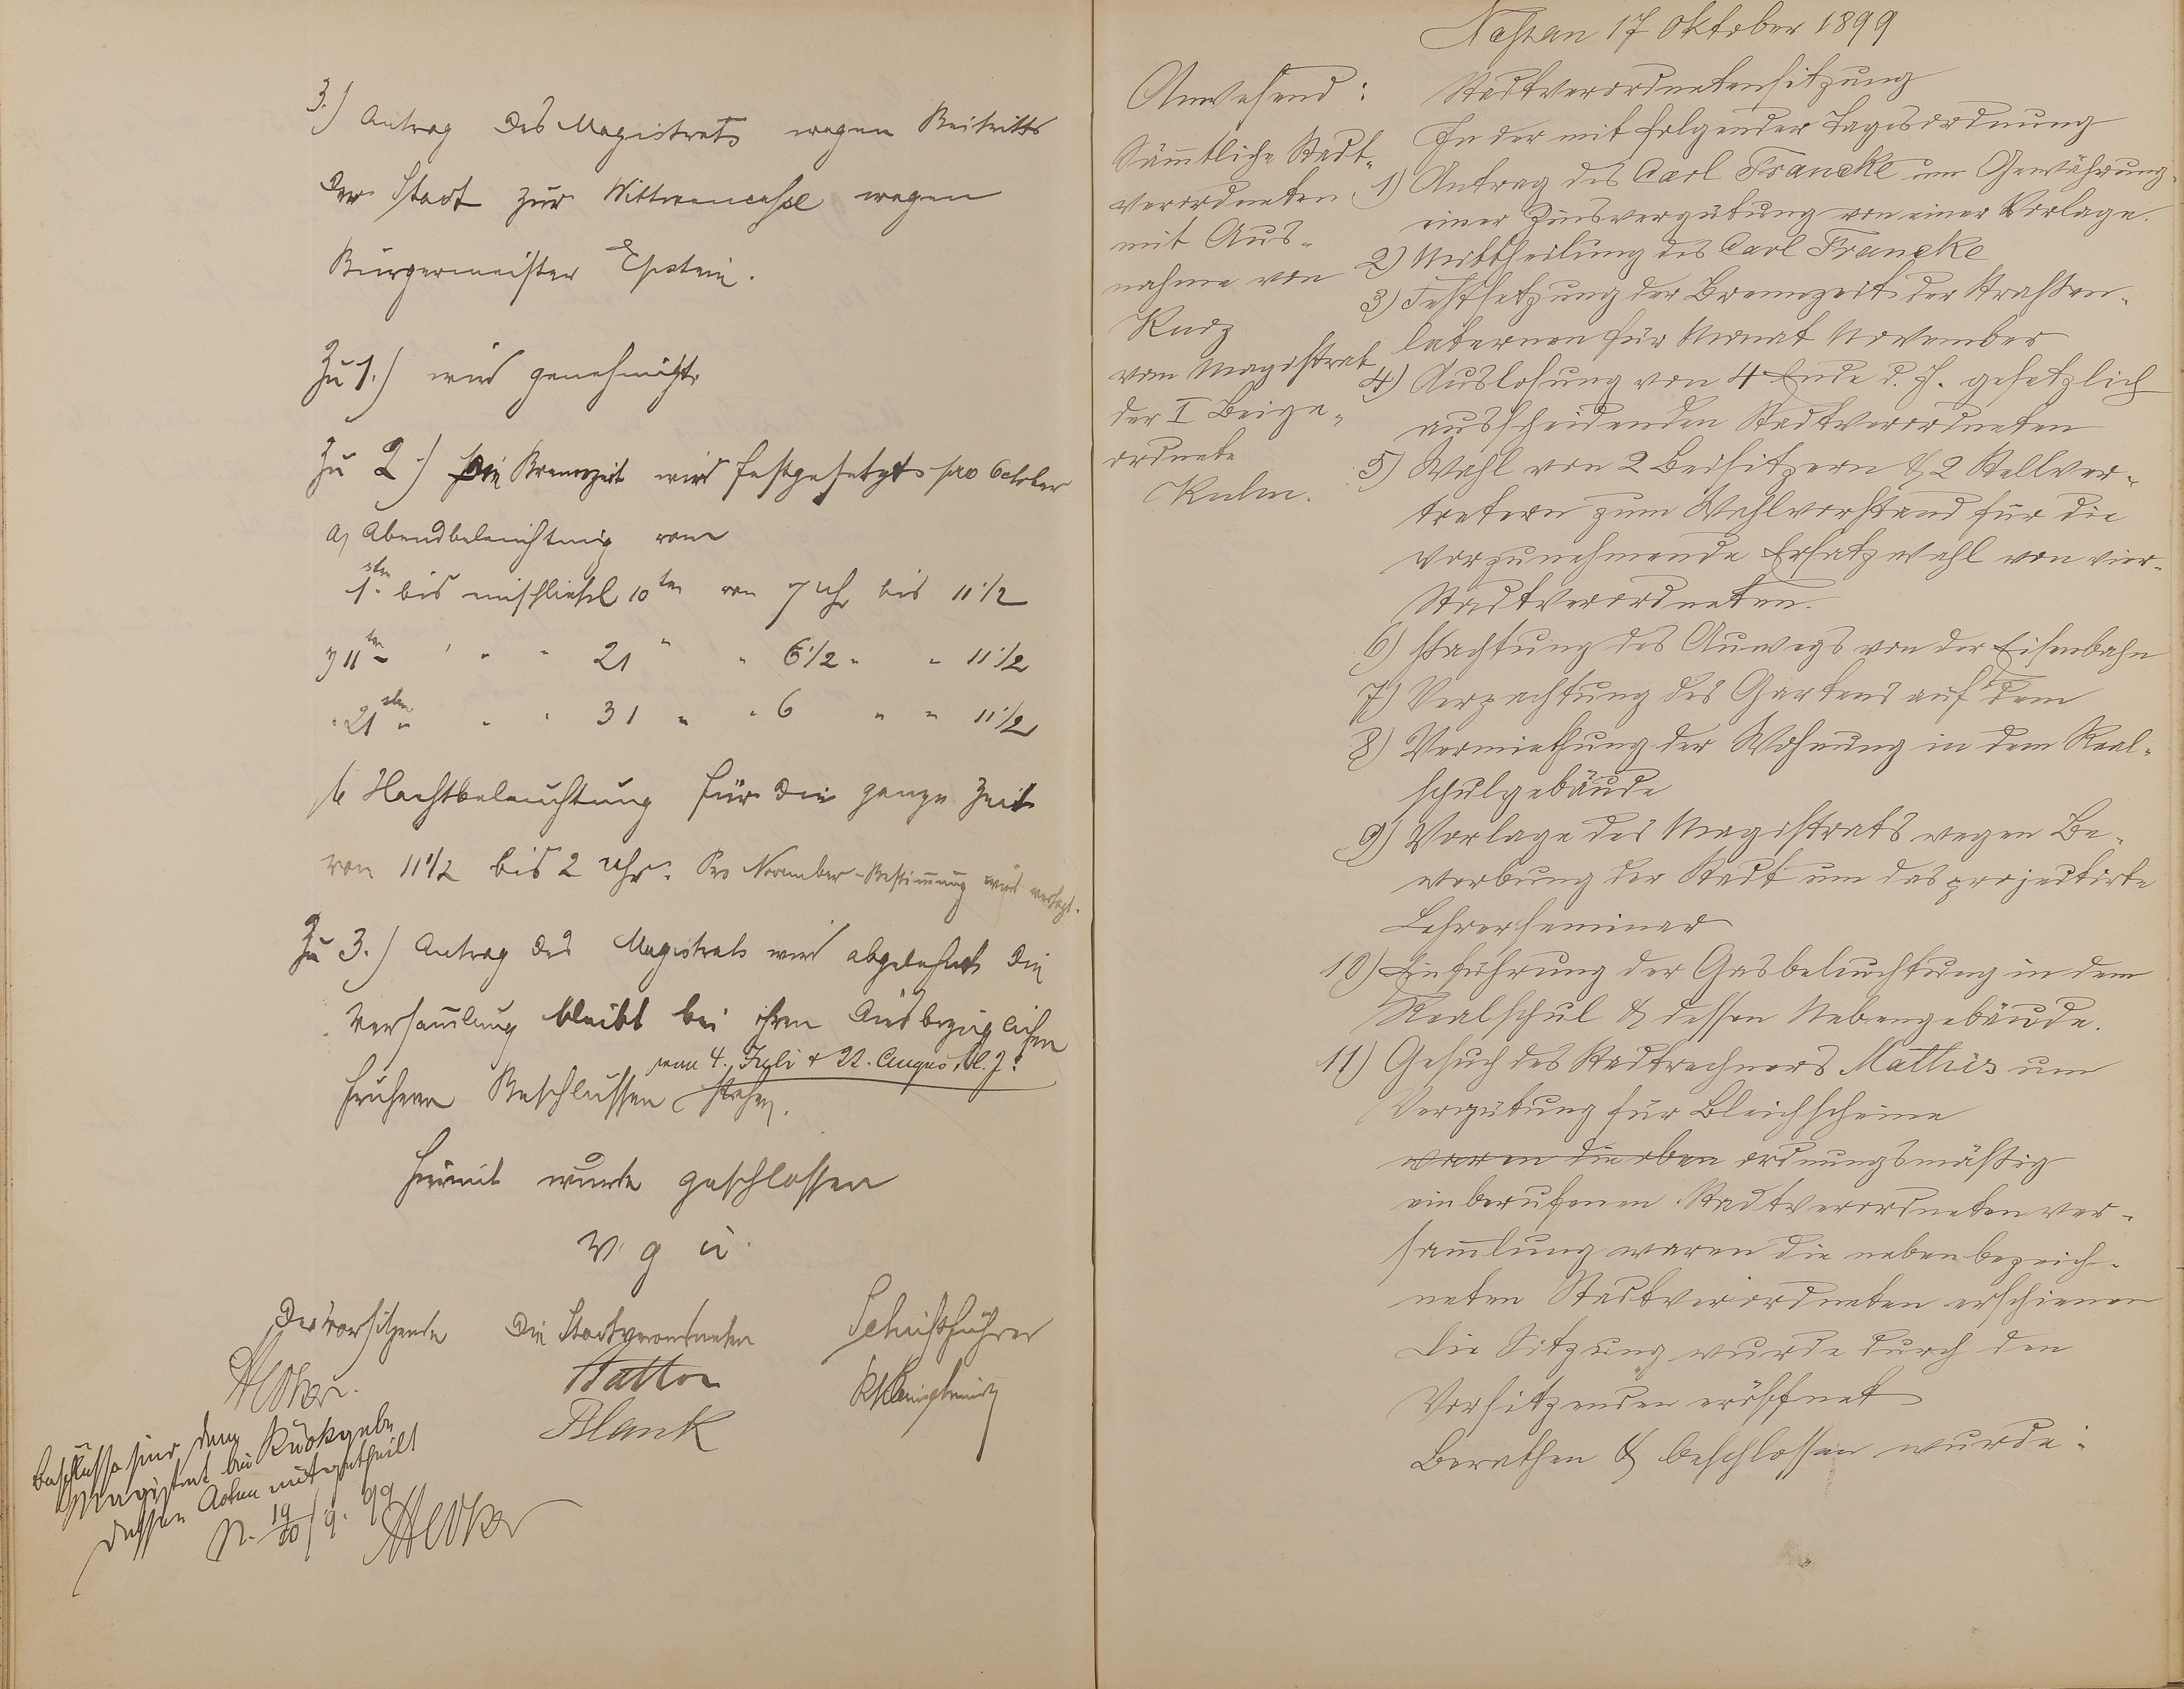 3.) Antrag des Magistrats wegen Beitritts
der Stadt zur Wittwencasse wegen
Bürgermeister Epstein.
Zu 1.) wird genehmigt.
Zu 2.) Die Brennzeit wird festgesetzt pro October
a, Abendbeleuchtung vom
1.sten bis einschließl 10ten von 7 Uhr bis 11 1/2
" 11ten " " " 21 " " 6 1/2 " " 11 1/2
" 21sten " " " 31 " " 6 " " 11 1/2
b Nachtbeleuchtung für die ganze Zeit
von 11 1/2 bis 2 Uhr. Pro November-Bestimmung wird vertagt.
Zu 3.) Antrag des Magistrats wird abgelehnt die
Versam̄lung bleibt bei ihren diesbezüglichen
vom 4. Juli & 22. August l. J.
früheren Beschlüssen stehen.
Hiermit wurde geschlossen
v. g. u.
Der Vorsitzende Die Stadtverordneten Schriftführer
Blank
Beschlüsse sind dem
Magistrat bei Rückgabe
dessen Acten mitgetheilt
N. 19/20/9. 99
Nastan 17 Oktober 1899
Anwesend:
Säm̄tliche Stadt-
verordneten
mit Aus-
nahme von
Kurz
vom Magistrat
der I Beige-
ordnete
Kulm.
Stadtverordnetensitzung
In der mit folgender Tagesordnung
1) Antrag des Carl Francke um Gewährung
einer Zinsvergütung von einer Vorlage.
2) Mittheilung des Carl Francke
3) Festsetzung der Brennzeit der Straßen-
laternen für Monat November
4) Auslosung von 4 Ende d. J. gesetzlich
ausscheidenden Stadtverordneten
5) Wahl von 2 Beisitzern & 2 Stellver-
tretern zum Wahlvorstand für die
vorzunehmende Ersatzwahl von vier
Stadtverordneten.
6) Pachtung des Auwegs von der Eisenbahn
7) Verpachtung des Gartens auf dem
8) Vermiethung der Wohnung in dem Real-
schulgebäude
9) Vorlage des Magistrats wegen Be-
werbung der Stadt um das projectirte
Lehrerseminar
10) Einführung der Gasbeleuchtung in dem
Realschul & dessen Nebengebäude.
11) Gesuch des Stadtrechners Mathis um
Vergütung für Bleichscheine
waren die oben ordnungsmäßig
einberufenen Stadtverordnetenver-
sam̄lung waren die nebenbezeich-
neten Stadtverordneten erschienen
Die Sitzung wurde durch den
Vorsitzenden eröffnet
Berathen & beschlossen wurde: